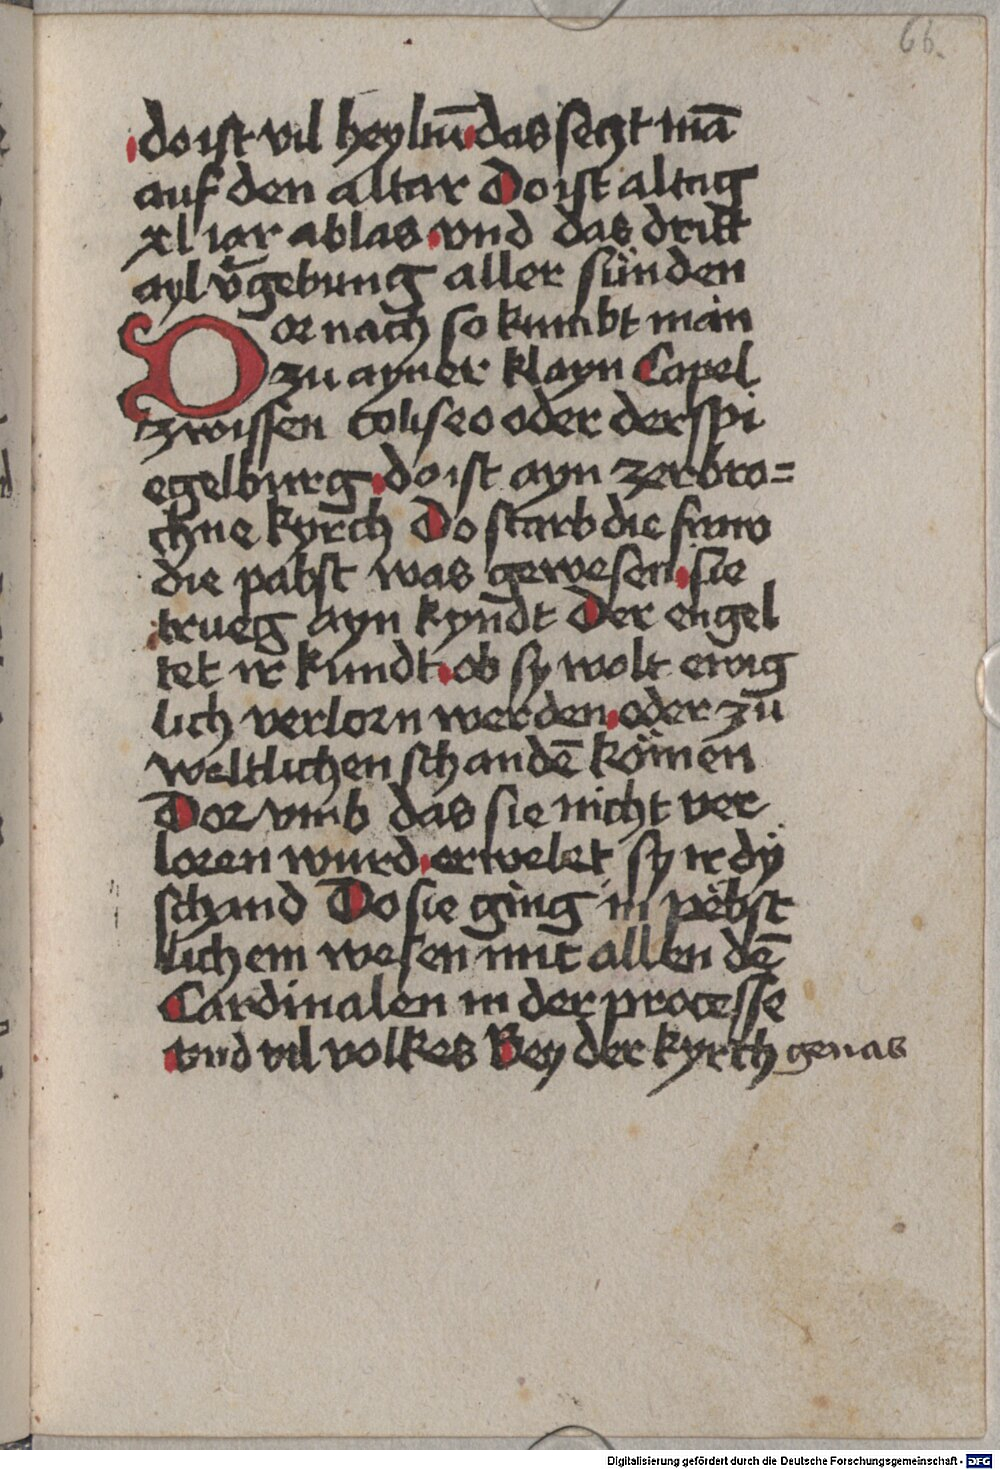 66.
do ist vil heyltū das seczt mā
auf den altar Do ist altag
xl iar ablas vnd das dritt
ayl v̄gebung aller sünden
Dor nach so kumbt man
zu ayner klayn Capel
zwissen coliseo oder der spi
egelburg do ist ayn zerbro=
chne kyrch Do starb die fraw
die pabst was gewesen sie
trueg ayn kyndt Der engel
tet ir kundt ob sy wolt ewig
lich verlorn werden oder zu
weltlichen schandē kömen
Dor vmb das sie nicht ver
loren wurd erwelet sy ir dÿ
schand Do sie ging in pëbst
lichem wesen mit allen dē
Cardinalen in der processe
vnd vil volkes Bey der kyrch genas
Digitalisierung gefördert durch die Deutsche Forschungsgemeinschaft - DFG